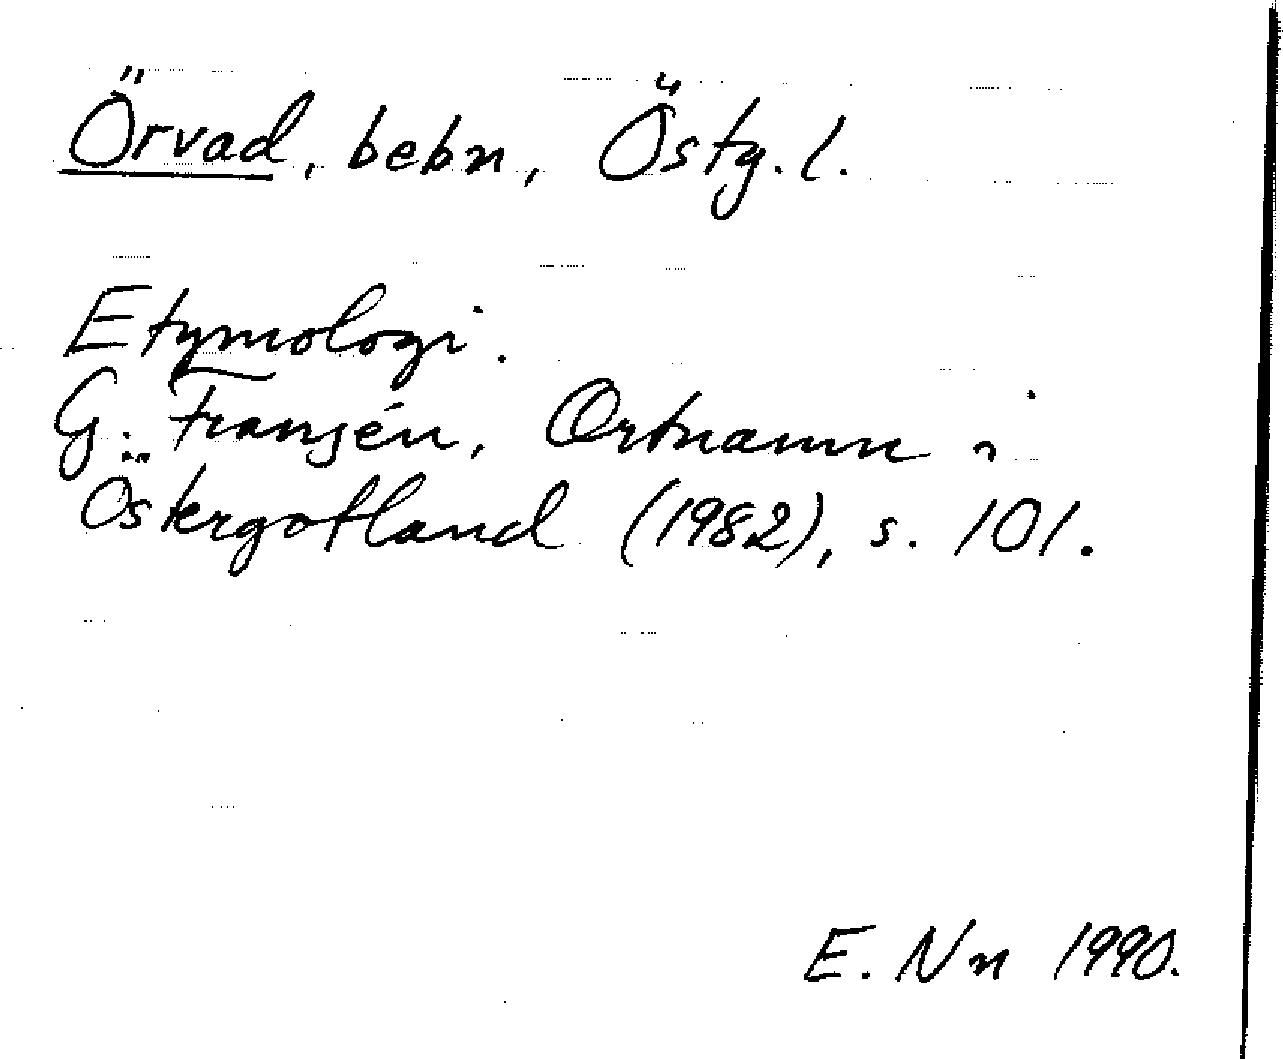 Örvad, bebn, Östg. l.
Etymologi.
G. Franzén, Ortnamn i
Östergötland (1982), s. 101.
E. Nn 1990.